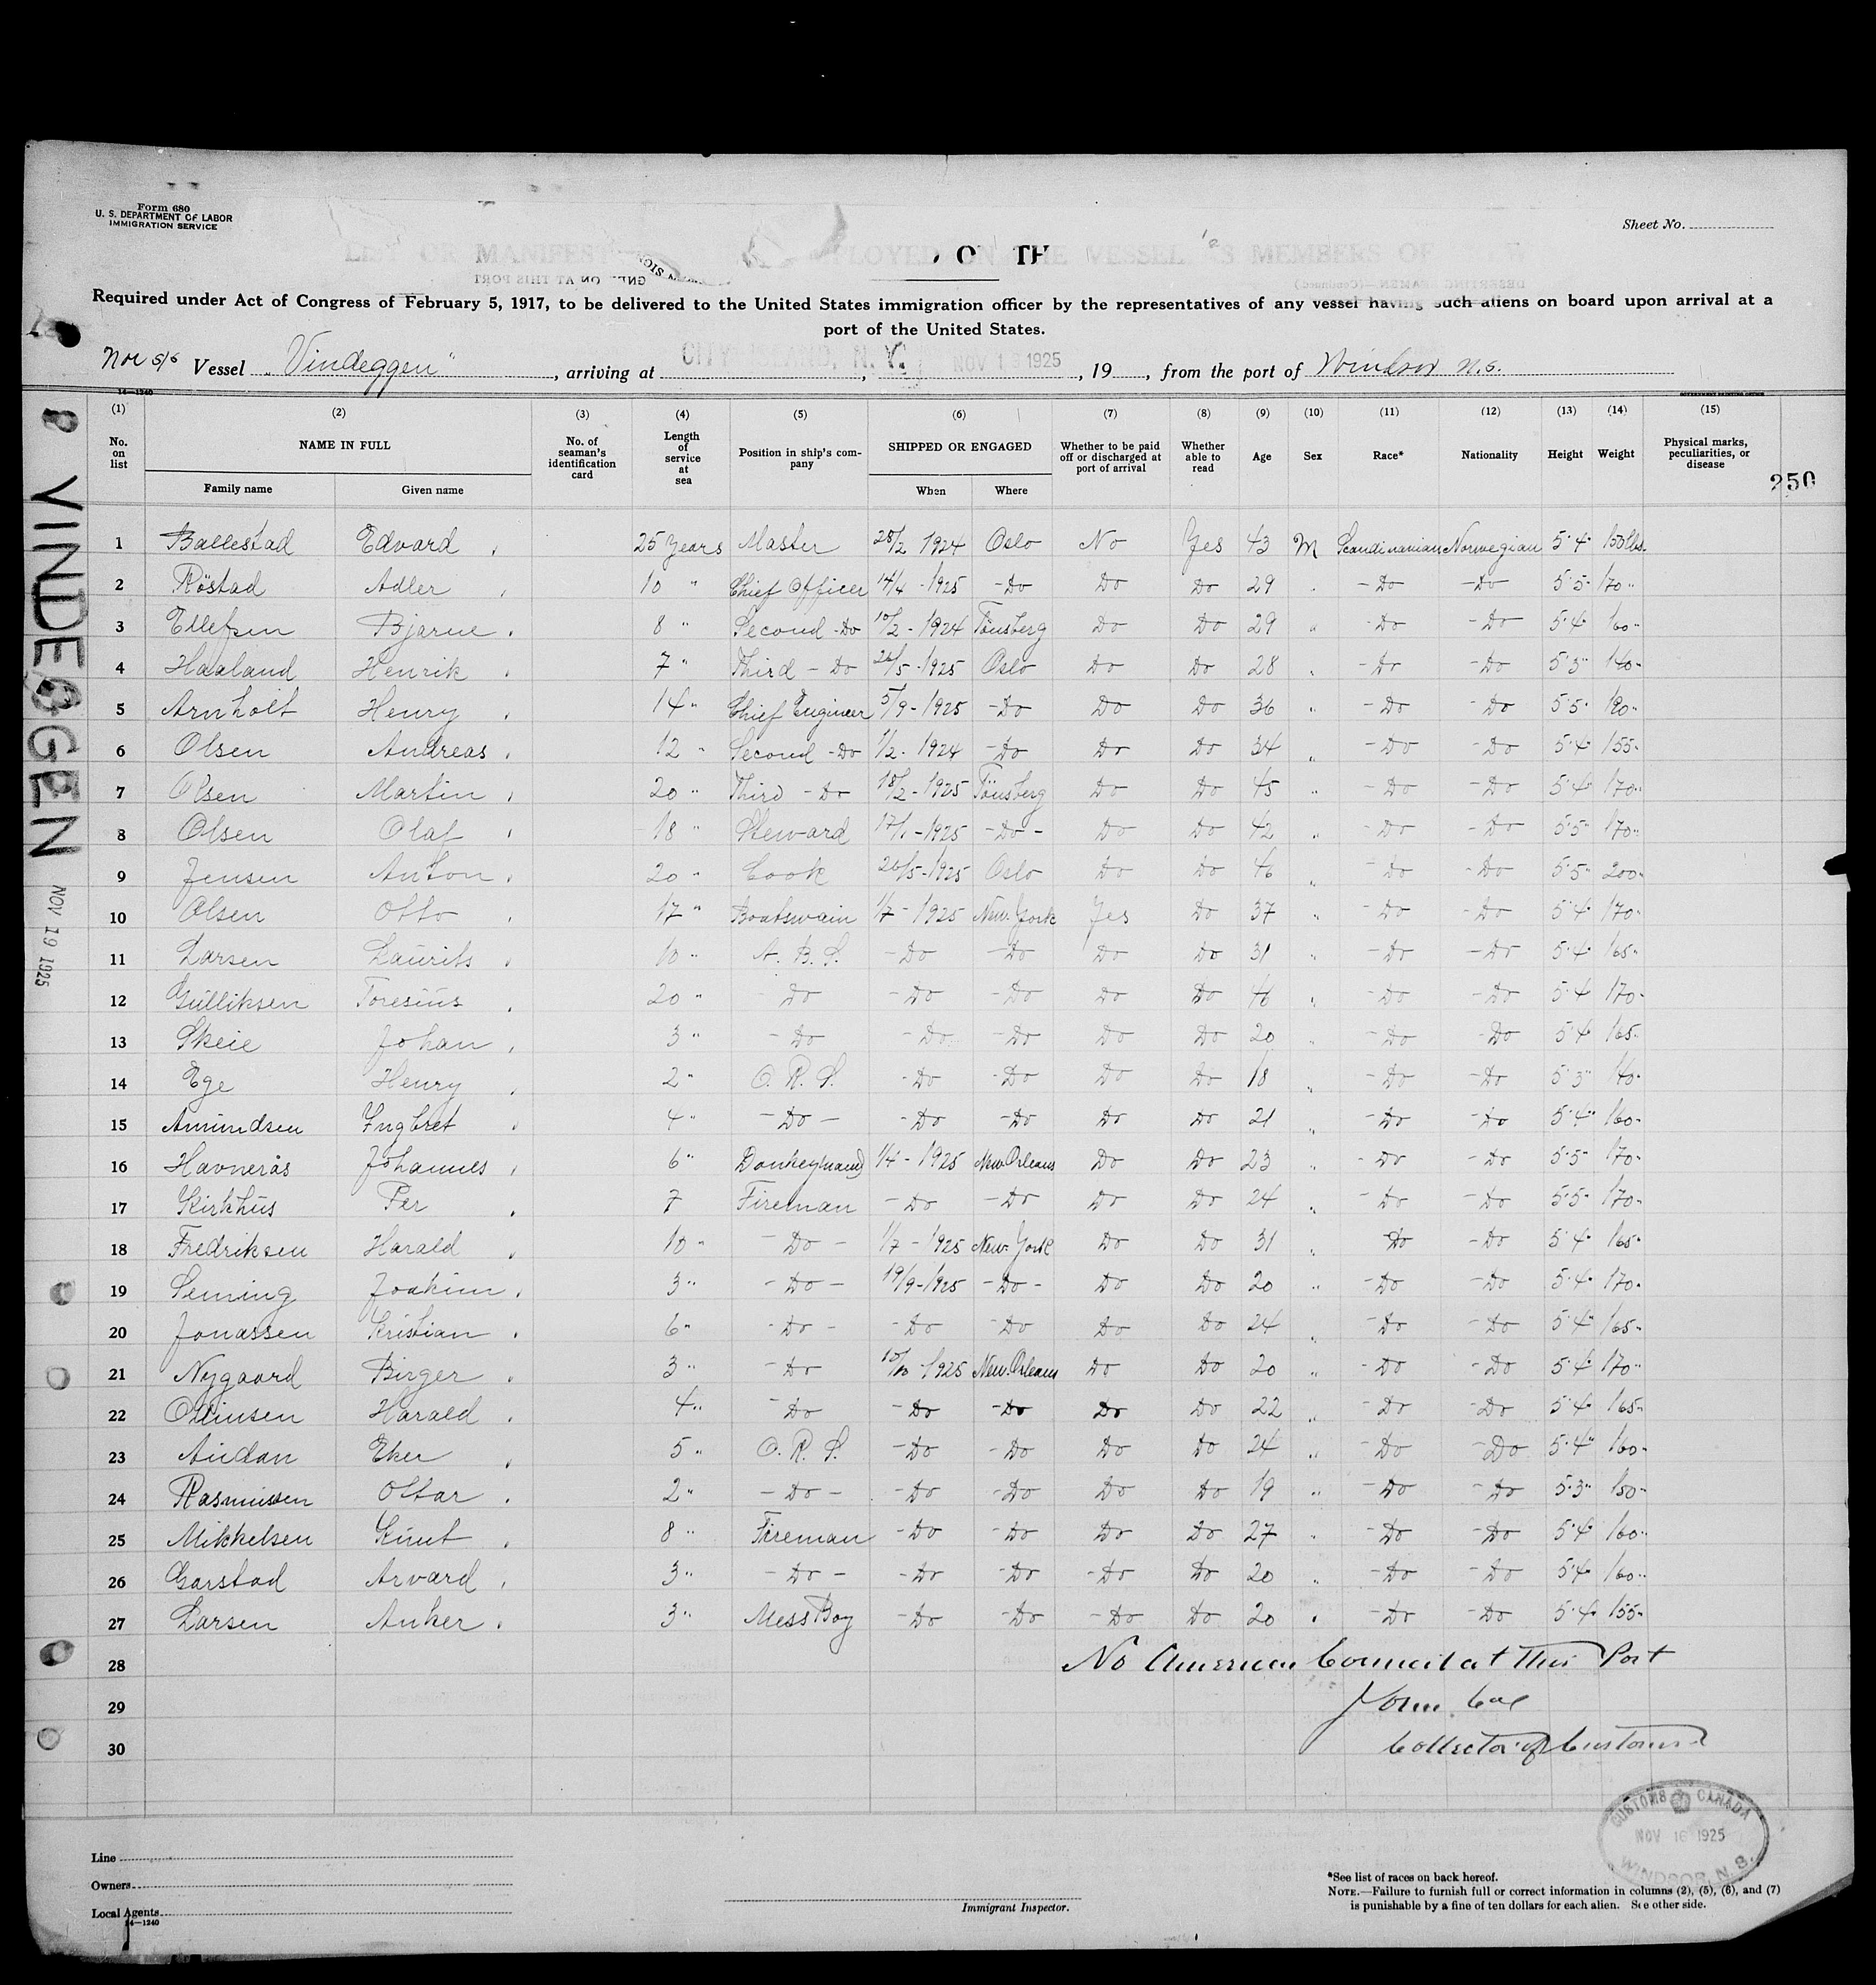 Form 680
U. S. DEPARTMENT OF LABOR
IMMIGRATION SERVICE
Sheet No.
LIST OR MANIFEST OF ALIENS EMPLOYED ON THE VESSEL AS MEMBERS OF CREW
Required under Act of Congress of February 5, 1917, to be delivered to the United States immigration officer by the representatives of any vessel having such aliens on board upon arrival at a
port of the United States.
Nor s/s Vessel "Vindeggen", arriving at N. Y., NOV 1 1925, 19, from the port of Windsor N.S.
14—1240
GOVERNMENT PRINTING OFFICE
(1) (2) (3) (4) (5) (6) (7) (8) (9) (10) (11) (12) (13) (14) (15)
No. on list NAME IN FULL No. of seaman's identification card Length of service at sea Position in ship's company SHIPPED OR ENGAGED Whether to be paid off or discharged at port of arrival Whether able to read Age Sex Race* Nationality Height Weight Physical marks, peculiarities, or disease
Family name Given name When Where
250
VINDEGGEN
NOV 19 1925
1 Ballestad Edvard 25 Years Master 28/2 1924 Oslo No Yes 43 M Scandinavian Norwegian 5'4" 150 lbs.
2 Röstad Adler 10 " Chief Officer 14/4 - 1925 -Do Do Do 29 " -Do -Do 5'5" 170 "
3 Ellefsen Bjarne 8 " Second -Do 10/2 - 1924 Tönsberg Do Do 29 " -Do -Do 5'4" 160 "
4 Haaland Henrik 7 " Third - Do 26/5 - 1925 Oslo Do Do 28 " -Do -Do 5'3" 140 "
5 Arnholt Henry 14 " Chief Engineer 5/9 - 1925 -Do Do Do 36 " -Do -Do 5'5" 180 "
6 Olsen Andreas 12 " Second -Do 1/2 - 1924 -Do Do Do 34 " -Do -Do 5'4" 155 "
7 Olsen Martin 20 " Third - Do 18/2 - 1925 Tönsberg Do Do 45 " -Do -Do 5'4" 170 "
8 Olsen Olaf 18 " Steward 17/1 - 1925 -Do- Do Do 42 " -Do -Do 5'5" 170 "
9 Jensen Anton 20 " Cook 26/5 - 1925 Oslo Do Do 46 " -Do -Do 5'5" 200 "
10 Olsen Otto 17 " Boatswain 1/7 - 1925 New York Yes Do 37 " -Do -Do 5'4" 170 "
11 Larsen Laurits 10 " A. B. S. -Do -Do Do Do 31 " -Do -Do 5'4" 165 "
12 Gulliksen Toresius 20 " Do -Do -Do Do Do 46 " -Do -Do 5'4 170 "
13 Skeie Johan 3 " -Do -Do -Do Do Do 20 " -Do -Do 5'4 165 "
14 Ege Henry 2 " O. R. S. -Do -Do Do Do 18 " -Do -Do 5'3" 140 "
15 Amundsen Yngbret 4 " -Do- -Do -Do Do Do 21 " -Do -Do 5'4" 160 "
16 Havnerås Johannes 6 " Donkeymand 1/4 - 1925 New Orleans Do Do 23 " -Do -Do 5'5" 170 "
17 Kirkhus Per 7 Fireman -Do -Do Do Do 24 " -Do -Do 5'5" 170 "
18 Fredriksen Harald 10 " -Do- 1/7 - 1925 New York Do Do 31 " Do -Do 5'4" 165 "
19 Seming Joakim 3 " -Do- 19/9 - 1925 -Do- Do Do 20 " -Do -Do 5'4" 170 "
20 Jonassen Kristian 6 " -Do- -Do -Do Do Do 24 " -Do -Do 5'4" 165 "
21 Nygaard Birger 3 " -Do 10/10 - 1925 New Orleans Do Do 20 " -Do -Do 5'4" 170 "
22 Harald 4 " -Do -Do -Do Do Do 22 " -Do -Do 5'4" 165 "
23 Audan Eker 5 " O. R. S. -Do -Do Do Do 24 " -Do -Do 5'4" 160 "
24 Rasmussen Ottar 2 " -Do- -Do -Do Do Do 19 " -Do -Do 5'3" 150 "
25 Mikkelsen Knut 8 " Fireman -Do -Do Do Do 27 " -Do -Do 5'4" 160 "
26 Garstad Arvard 3 " -Do- -Do -Do -Do Do 20 " -Do -Do 5'4" 160 "
27 Larsen Anker 3 " Mess Boy -Do -Do -Do Do 20 " -Do -Do 5'4" 155 "
28 No American Council at This Port
29
30 Collector of Customs
CUSTOMS CANADA
NOV 16 1925
WINDSOR, N. S.
Line
Owners
Local Agents
14—1240
Immigrant Inspector.
*See list of races on back hereof.
NOTE.—Failure to furnish full or correct information in columns (2), (5), (6), and (7)
is punishable by a fine of ten dollars for each alien. See other side.